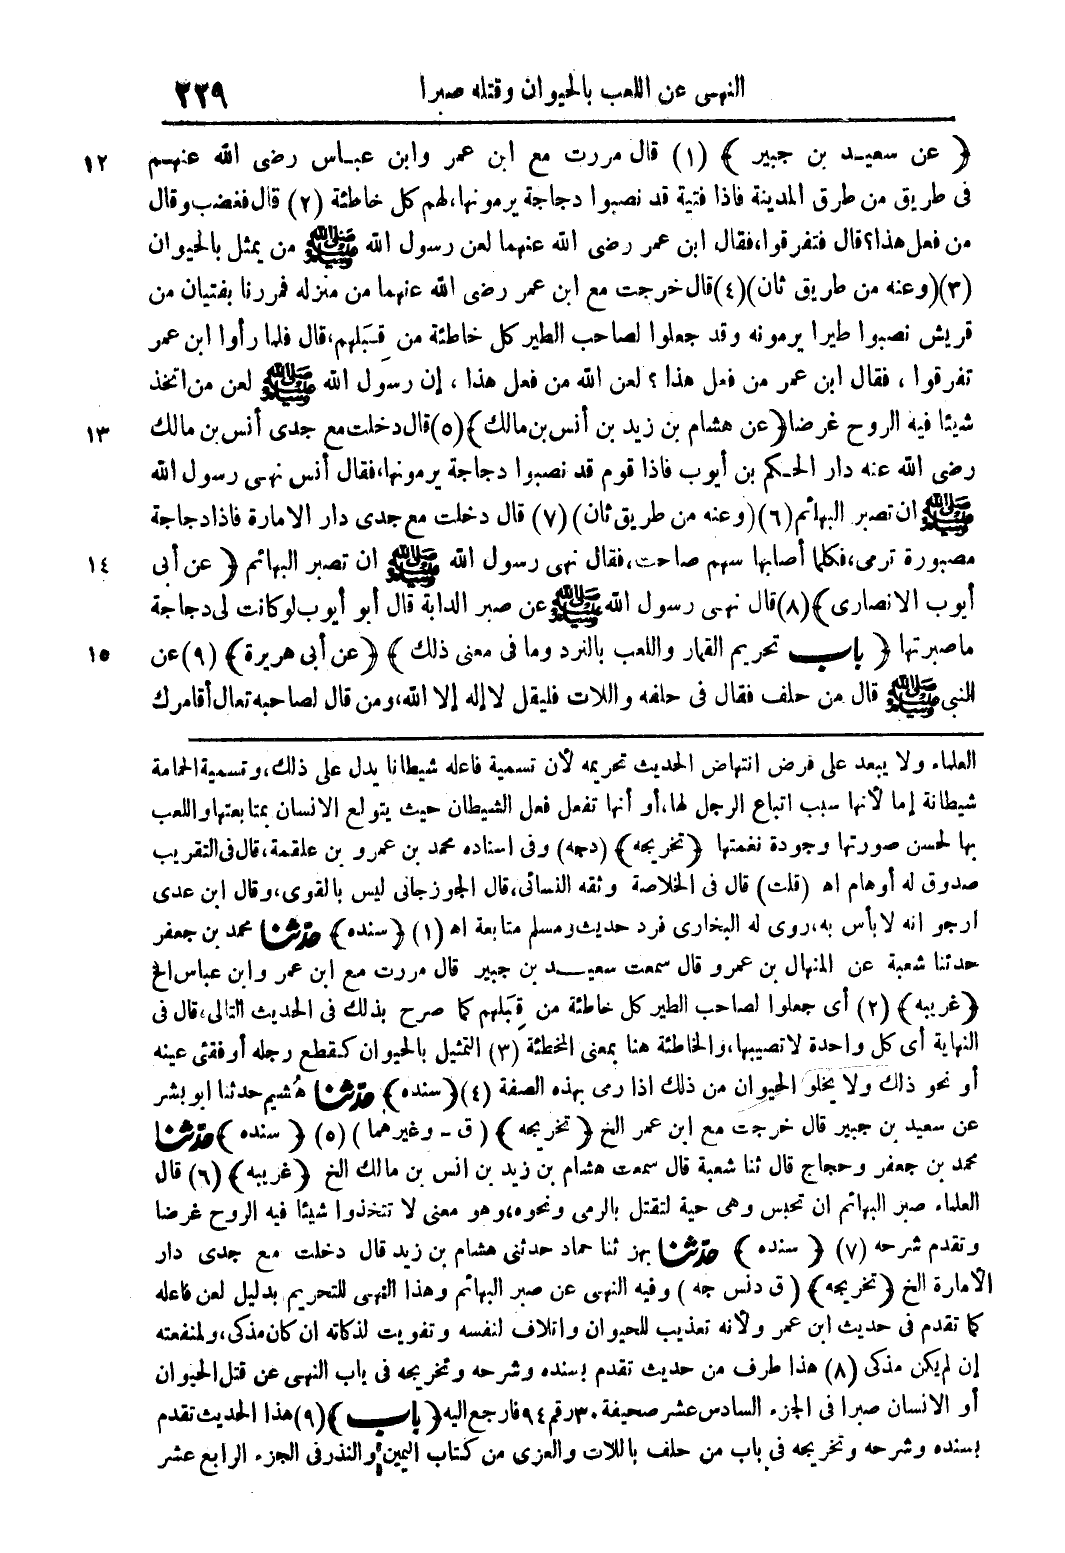 النهى عن اللعب بالحيوان وقتله صبرا ٢٢٩
﴿ عن سعيد بن جبير ﴾ (١) قال مررت مع ابن عمر وابن عباس رضى الله عنهم ١٢
فى طريق من طرق المدينة فاذا فتية قد نصبوا دجاجة يرمونها، لهم كل خاطئة (٢) قال فغضب وقال
من فعل هذا؟ قال فتفرقوا، فقال ابن عمر رضى الله عنهما لعن رسول الله ﷺ من يمثل بالحيوان
(٣) (وعنه من طريق ثان) (٤) قال خرجت مع ابن عمر رضى الله عنهما من منزله فمررنا بفتيان من
قريش نصبوا طيرا يرمونه وقد جعلوا لصاحب الطير كل خاطئة من قِبَلهم، قال فلما رأوا ابن عمر
تفرقوا ، فقال ابن عمر من فعل هذا ؟ لعن الله من فعل هذا ، إن رسول الله ﷺ لعن من اتخذ
شيئا فيه الروح غرضا ﴿عن هشام بن زيد بن أنس بن مالك﴾ (٥) قال دخلت مع جدى أنس بن مالك ١٣
رضى الله عنه دار الحكم بن أيوب فاذا قوم قد نصبوا دجاجة يرمونها، فقال أنس نهى رسول الله
ﷺ ان تصبر البهائم (٦) (وعنه من طريق ثان) (٧) قال دخلت مع جدى دار الامارة فاذا دجاجة
مصبورة ترمى، فكلما أصابها سهم صاحت، فقال نهى رسول الله ﷺ ان تصبر البهائم ﴿ عن أبى ١٤
أيوب الانصارى﴾ (٨) قال نهى رسول الله ﷺ عن صبر الدابة قال أبو أيوب لو كانت لى دجاجة
ماصبرتها ﴿ باب تحريم القمار واللعب بالنرد وما فى معنى ذلك ﴾ ﴿عن أبى هريرة﴾ (٩) عن ١٥
النبى ﷺ قال من حلف فقال فى حلفه واللات فليقل لا إله إلا الله، ومن قال لصاحبه تعال أقامرك
العلماء ولا يبعد على فرض انتهاض الحديث تحريمه لأن تسمية فاعله شيطانا يدل على ذلك، وتسمية الحمامة
شيطانة إما لأنها سبب اتباع الرجل لها، أو أنها تفعل فعل الشيطان حيث يتولع الانسان بمتابعتها واللعب
بها لحسن صورتها وجودة نغمتها ﴿تخريجه﴾ (د جه) وفى اسناده محمد بن عمرو بن علقمة، قال فى التقريب
صدوق له أوهام اه (قلت) قال فى الخلاصة وثقه النسائى، قال الجوزجانى ليس بالقوى، وقال ابن عدى
ارجو انه لا بأس به، روى له البخارى فرد حديث ومسلم متابعة اه (١) ﴿سنده﴾ حدّثنا محمد بن جعفر
حدثنا شعبة عن المنهال بن عمرو قال سمعت سعيد بن جبير قال مررت مع ابن عمر وابن عباس الخ
﴿غريبه﴾ (٢) أى جعلوا لصاحب الطير كل خاطئة من قِبَلهم كما صرح بذلك فى الحديث التالى، قال فى
النهاية أى كل واحدة لاتصيبها، والخاطئة هنا بمعنى المخطئة (٣) التمثيل بالحيوان كقطع رجله أو فقئ عينه
أو نحو ذاك ولا يخلو الحيوان من ذلك اذا رمى بهذه الصفة (٤) ﴿سنده﴾ حدّثنا هُشيم حدثنا ابو بشر
عن سعيد بن جبير قال خرجت مع ابن عمر الخ ﴿تخريجه﴾ (ق - وغيرهما) (٥) ﴿سنده﴾ حدّثنا
محمد بن جعفر وحجاج قال ثنا شعبة قال سمعت هشام بن زيد بن انس بن مالك الخ ﴿غريبه﴾ (٦) قال
العلماء صبر البهائم ان تحبس وهى حية لتقتل بالرمى ونحوه، وهو معنى لا تتخذوا شيئا فيه الروح غرضا
وتقدم شرحه (٧) ﴿ سنده ﴾ حدّثنا بهز ثنا حماد حدثنى هشام بن زيد قال دخلت مع جدى دار
الأمارة الخ ﴿تخريجه﴾ (ق د نس جه) وفيه النهى عن صبر البهائم وهذا النهى للتحريم بدليل لعن فاعله
كما تقدم فى حديث ابن عمر ولأنه تعذيب للحيوان واتلاف لنفسه وتفويت لذكاته ان كان مذكى، ولمنفعته
إن لم يكن مذكى (٨) هذا طرف من حديث تقدم بسنده وشرحه وتخريجه فى باب النهى عن قتل الحيوان
أو الانسان صبرا فى الجزء السادس عشر صحيفة ٣٠ رقم ٩٤ فارجع اليه ﴿ باب ﴾ (٩) هذا الحديث تقدم
بسنده وشرحه وتخريجه فى باب من حلف باللات والعزى من كتاب اليمين والنذر فى الجزء الرابع عشر